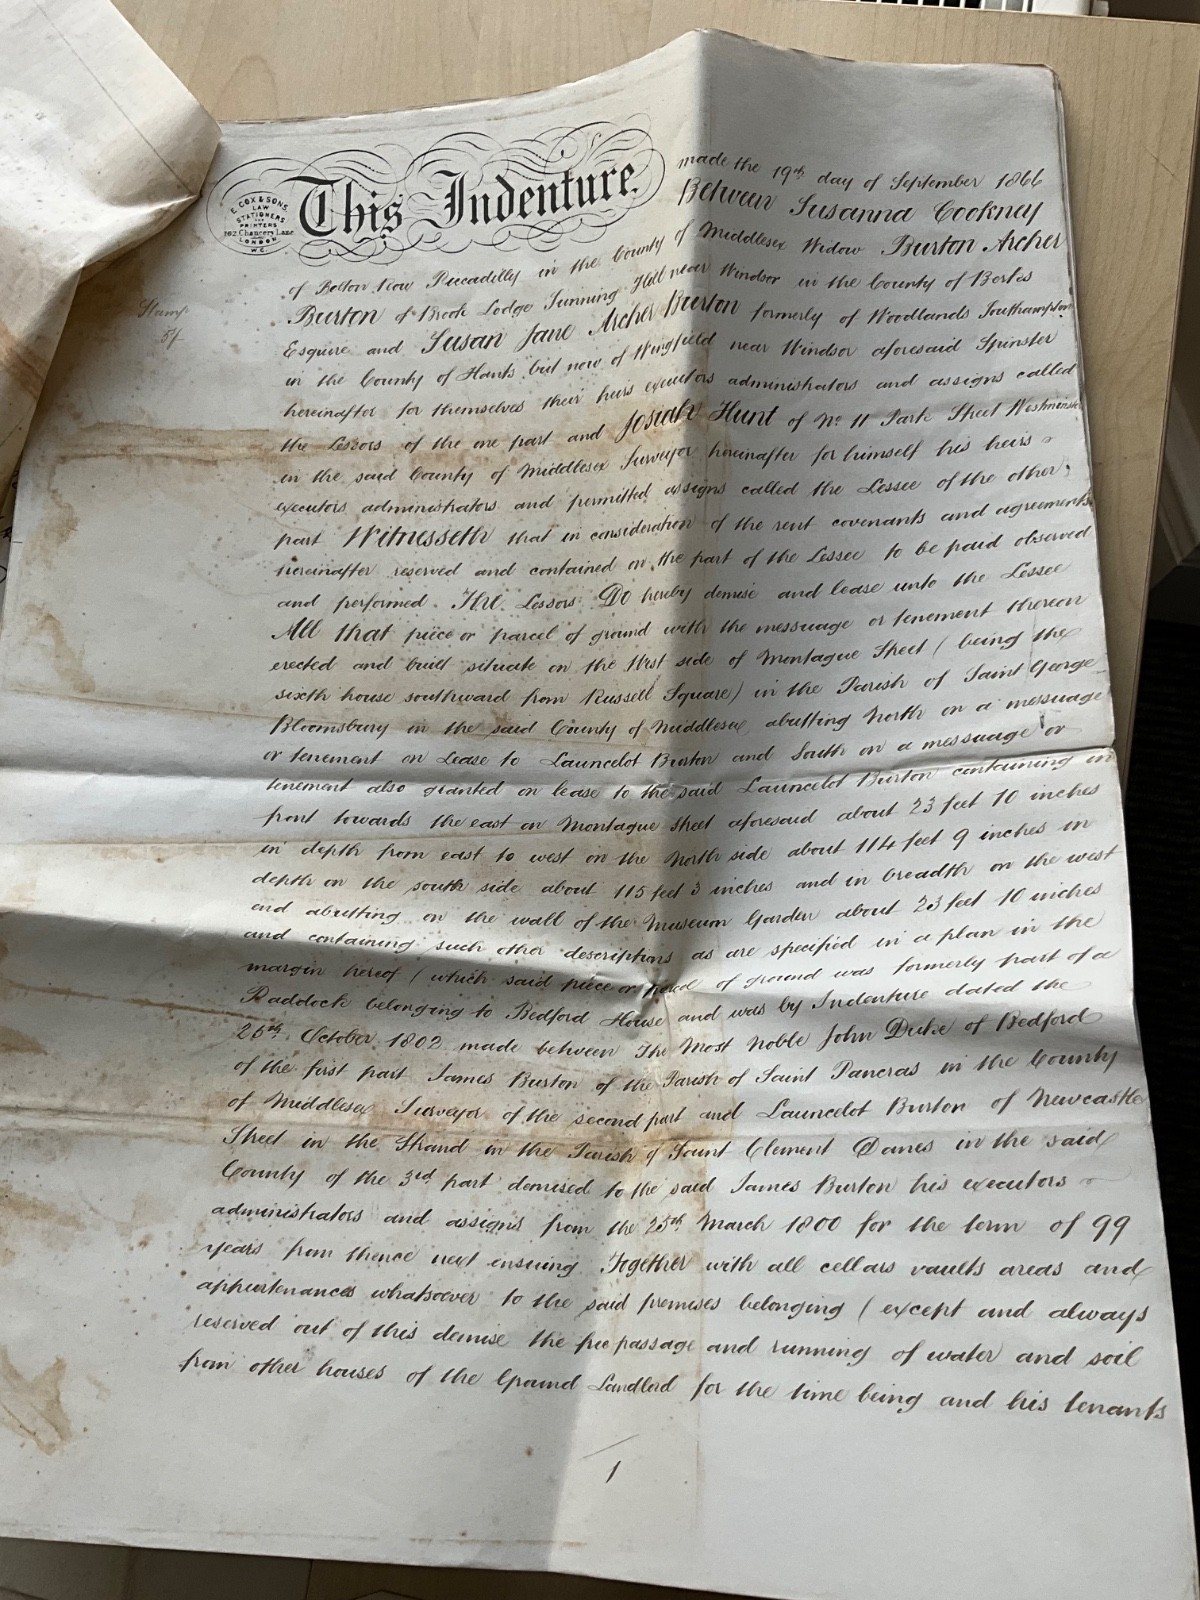 This Indenture
E. COX & SONS.
LAW
STATIONERS
AND
PRINTERS
102 Chancery Lane
LONDON
W.C.
made the 19th day of September 1866
Between Susanna Cooknay
of Bolton Row Piccadilly in the County of Middlesex Widow Burton Archer
Burton of Brook Lodge Sunning Hill near Windsor in the County of Berks
Esquire and Susan Jane Archer Burton formerly of Woodlands Southampton
in the County of Hants but now of Wingfield near Windsor aforesaid Spinster
hereinafter for themselves their heirs executors administrators and assigns called
the Lessors of the one part and Josiah Hunt of No 11 Park Street Westminster
in the said County of Middlesex Surveyor hereinafter for himself his heirs
executors administrators and permitted assigns called the Lessee of the other
part Witnesseth that in consideration of the rent covenants and agreements
hereinafter reserved and contained on the part of the Lessee to be paid observed
and performed The Lessors Do hereby demise and lease unto the Lessee
All that piece or parcel of ground with the messuage or tenement thereon
erected and built situate on the West side of Montague Street (being the
sixth house southward from Russell Square) in the Parish of Saint George
Bloomsbury in the said County of Middlesex abutting North on a messuage
or tenement on Lease to Launcelot Burton and South on a messuage or
tenement also granted on lease to the said Launcelot Burton containing in
front towards the east on Montague Street aforesaid about 23 feet 10 inches
in depth from east to west on the North side about 114 feet 9 inches in
depth on the south side about 115 feet 3 inches and in breadth on the west
end abutting on the wall of the Museum Garden about 23 feet 10 inches
and containing such other descriptions as are specified in a plan in the
margin hereof (which said piece or parcel of ground was formerly part of a
Paddock belonging to Bedford House and was by Indenture dated the
25th October 1802 made between The Most Noble John Duke of Bedford
of the first part James Burton of the Parish of Saint Pancras in the County
of Middlesex Surveyor of the second part and Launcelot Burton of Newcastle
Street in the Strand in the Parish of Saint Clement Danes in the said
County of the 3rd part demised to the said James Burton his executors
administrators and assigns from the 25th March 1800 for the term of 99
years from thence next ensuing Together with all cellars vaults areas and
appurtenances whatsoever to the said premises belonging (except and always
reserved out of this demise the free passage and running of water and soil
from other houses of the Ground Landlord for the time being and his tenants
Stamp
1